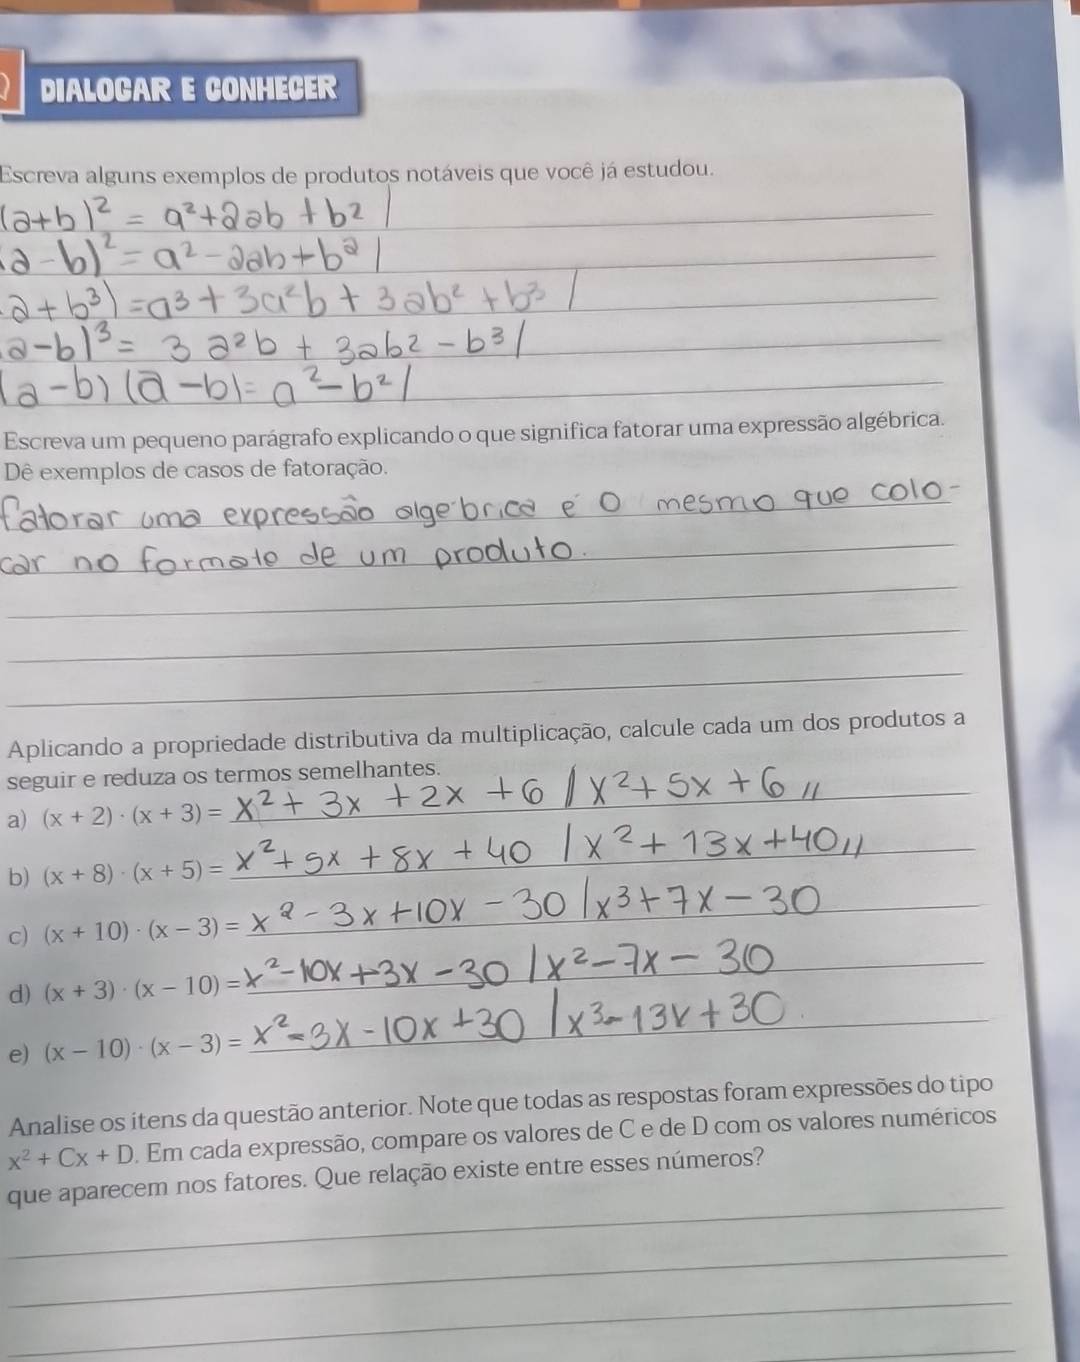 DIALOGAR E CONHECER
Escreva alguns exemplos de produtos notáveis que você já estudou.
(a+b)² = a²+2ab+b² /
(a-b)² = a²-2ab+b² /
a+b³) = a³+3a²b+3ab²+b³ /
a-b)³ = 3a²b+3ab²-b³ /
(a-b)(a-b) = a²-b² /
Escreva um pequeno parágrafo explicando o que significa fatorar uma expressão algébrica.
Dê exemplos de casos de fatoração.
fatorar uma expressão algébrica é o mesmo que colo-
car no formato de um produto.
Aplicando a propriedade distributiva da multiplicação, calcule cada um dos produtos a
seguir e reduza os termos semelhantes.
a) (x + 2) · (x + 3) = x²+3x+2x+6 / x²+5x+6 //
b) (x + 8) · (x + 5) = x²+5x+8x+40 / x²+13x+40 //
c) (x + 10) · (x − 3) = x²-3x+10x-30 / x³+7x-30
d) (x + 3) · (x − 10) = x²-10x+3x-30 / x²-7x-30
e) (x − 10) · (x − 3) = x²-3x-10x+30 / x³-13x+30
Analise os itens da questão anterior. Note que todas as respostas foram expressões do tipo
x² + Cx + D. Em cada expressão, compare os valores de C e de D com os valores numéricos
que aparecem nos fatores. Que relação existe entre esses números?